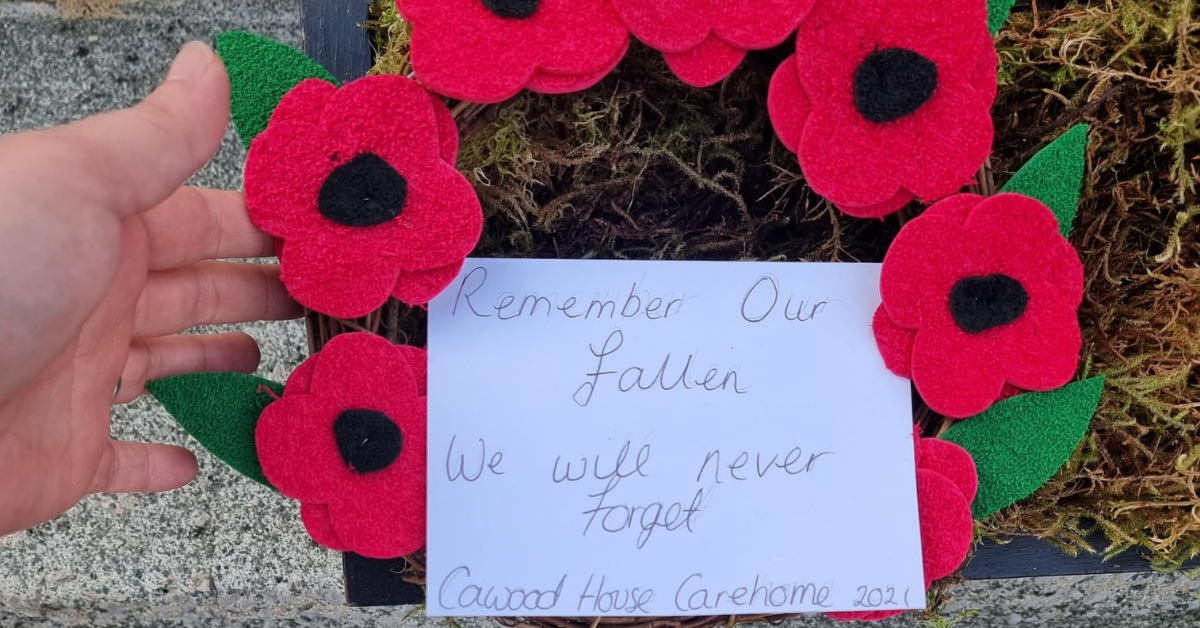 Remember Our
fallen
We will never
forget
Cawood House Carehome 2021